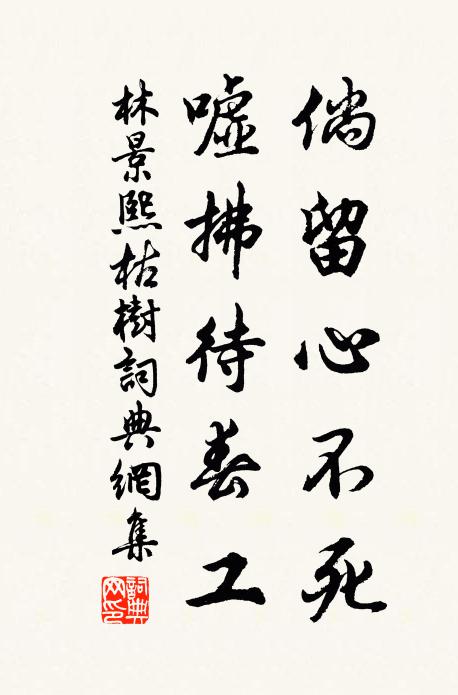 倘留心不死
嘘拂待春工
林景熙枯樹詞典網集
詞典網印